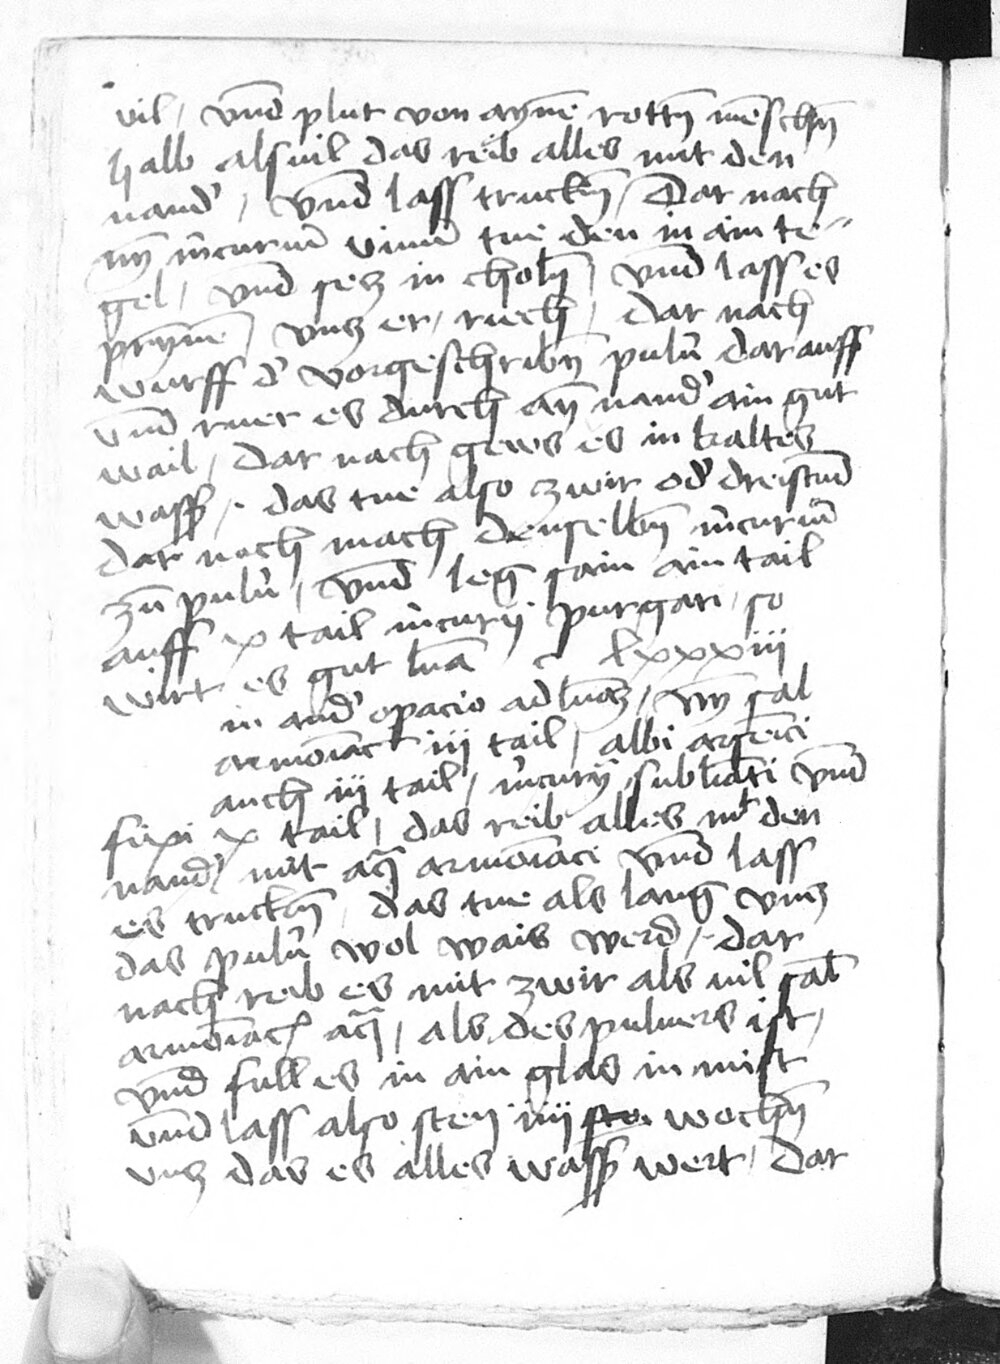 vil / vnd̄ plut von ayn̄e rottn̄ mēschn̄
halb als vil das reib alles mit den
nand' / vnd̄ lass truckn̄ / Dar nach
nȳ m̄curiū viuū tue den in ain te=
gel / vnd̄ secz in choln̄ / vnd̄ lass es
prȳnne / vncz er / riech / dar nach
wurff d' vorgeschribn̄ pulū darauff
vnd̄ ruer es durch ay̅ nand' ain gut
wail / dar nach gews es in kaltes
wass̄ / . das tue also zwir od' dreistund̄
dar noch mach denselbn̄ m̄curiū
zū pulū / vnd̄ leg sain ain tail
auff x tail m̄curij purgati / so
wirt es gut lūa c lxxxiii
in and' opacio ad lūaz / nȳ sal
armoiac iij tail / albi arsēici
auch iij tail / m̄curij sublīati vnd̄
fixi x tail / das reib alles mt den
nand' mit aq̄ armoiaci vnd̄ lass
es truckn̄ / das tue als lang vncz
das pulū wol wais werd / . dar
nach reib es mit zwir als vil sal
armoiac aq̄ / als des pulvers ist /
vnd̄ full es in ain glas in mist
vnd̄ lass also sten iiij wochn̄
vncz das es alles wass̄ wert / dar